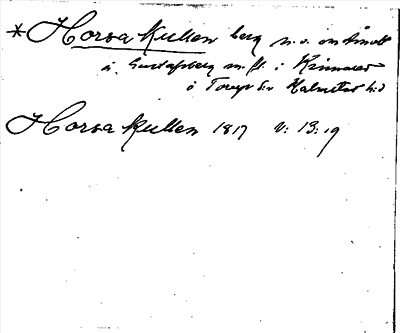 *Horsa Kullen berg n.o. om
å Gustafsberg m.fl. i
å Torups sn Halmstad h:d
Horsa Kullen 1817 V: 13: 19